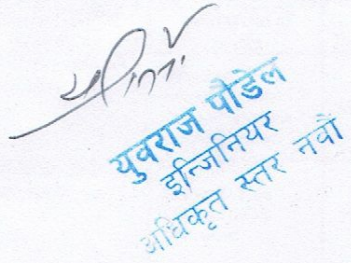 युवराज पौडेल
इन्जिनियर
अधिकृत स्तर नवौं